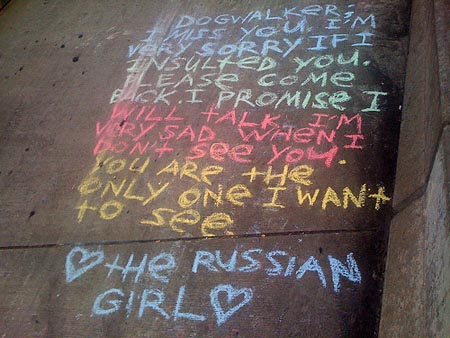 DOGWALKER;
I MISS YOU. I'M
VERY SORRY IF I
INSULTED YOU.
PLEASE COME
BACK. I PROMISE I
WILL TALK. I'M
VERY SAD WHEN I
DON'T SEE YOU.
YOU ARE THE
ONLY ONE I WANT
TO SEE
♡ THE RUSSIAN
GIRL ♡